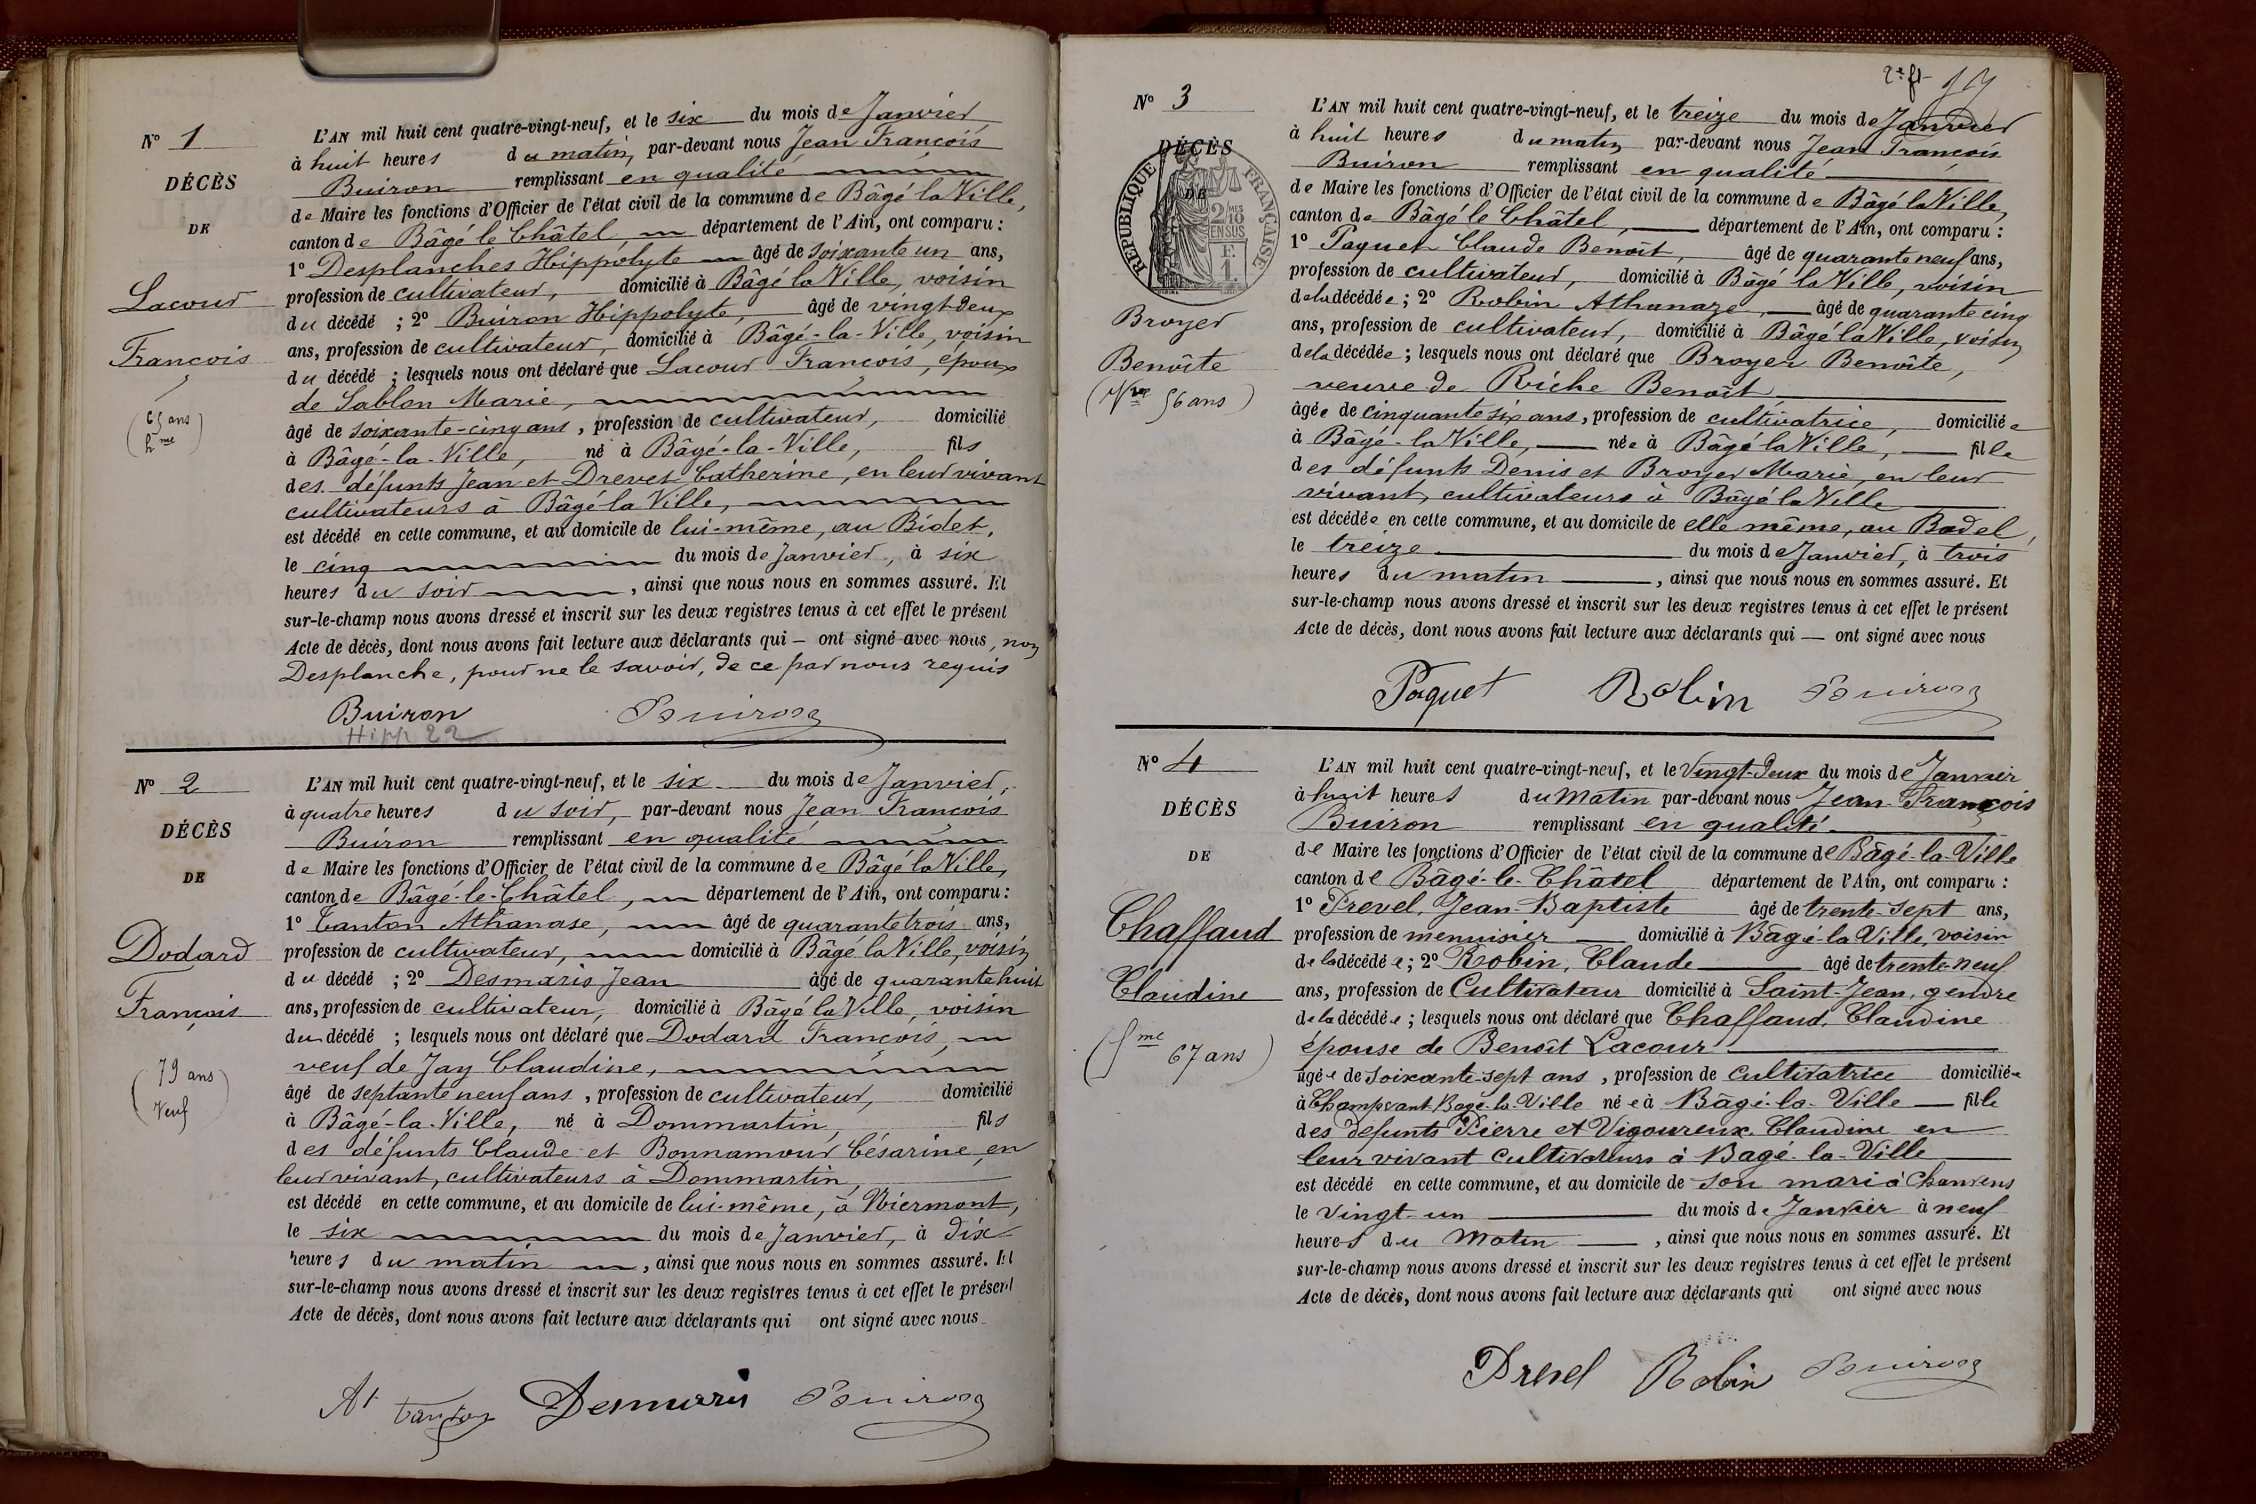 N° 1
DÉCÈS
DE
Lacour
François
(65 ans)
h.me
L'AN mil huit cent quatre-vingt-neuf, et le six du mois de Janvier
à huit heures du matin, par-devant nous Jean François
Buiron remplissant en qualité
de Maire les fonctions d'Officier de l'état civil de la commune de Bâgé la Ville,
canton de Bâgé le Châtel département de l'Ain, ont comparu :
1° Desplanches Hippolyte âgé de soixante un ans,
profession de cultivateur, domicilié à Bâgé la Ville, voisin
du décédé ; 2° Buiron Hippolyte, âgé de vingt-deux
ans, profession de cultivateur, domicilié à Bâgé-la-Ville, voisin
du décédé ; lesquels nous ont déclaré que Lacour François, époux
de Sablon Marie,
âgé de soixante-cinq ans, profession de cultivateur, domicilié
à Bâgé-la-Ville, né à Bâgé-la-Ville, fils
des défunts Jean et Drevet Catherine, en leur vivant
cultivateurs à Bâgé la Ville,
est décédé en cette commune, et au domicile de lui-même, au Bidet,
le cinq du mois de Janvier, à six
heures du soir, ainsi que nous nous en sommes assuré. Et
sur-le-champ nous avons dressé et inscrit sur les deux registres tenus à cet effet le présent
Acte de décès, dont nous avons fait lecture aux déclarants qui – ont signé avec nous, non
Desplanche, pour ne le savoir, de ce par nous requis
Buiron Buiron
Hipp 22
N° 2
DÉCÈS
DE
Dodard
François
(79 ans
Veuf)
L'AN mil huit cent quatre-vingt-neuf, et le six du mois de Janvier,
à quatre heures du soir, par-devant nous Jean François
Buiron remplissant en qualité
de Maire les fonctions d'Officier de l'état civil de la commune de Bâgé la Ville,
canton de Bâgé-le-Châtel, département de l'Ain, ont comparu :
1° Tanton Athanase, âgé de quarante trois ans,
profession de cultivateur, domicilié à Bâgé la Ville, voisin
du décédé ; 2° Desmaris Jean âgé de quarante huit
ans, profession de cultivateur, domicilié à Bâgé la Ville, voisin
du décédé ; lesquels nous ont déclaré que Dodard François,
veuf de Jay Claudine,
âgé de septante neuf ans, profession de cultivateur, domicilié
à Bâgé-la-Ville, né à Dommartin, fils
des défunts Claude et Bonnamour Césarine, en
leur vivant, cultivateurs à Dommartin,
est décédé en cette commune, et au domicile de lui-même, à Niermont,
le six du mois de Janvier, à dix
heures du matin, ainsi que nous nous en sommes assuré. Et
sur-le-champ nous avons dressé et inscrit sur les deux registres tenus à cet effet le présent
Acte de décès, dont nous avons fait lecture aux déclarants qui ont signé avec nous
At Tanton Desmarris Buiron
2e ft
N° 3
DÉCÈS
DE
RÉPUBLIQUE FRANÇAISE
2/10MES
EN SUS
F.
1
Broyer
Benoîte
(Vve 56 ans)
L'AN mil huit cent quatre-vingt-neuf, et le treize du mois de Janvier
à huit heures du matin par-devant nous Jean François
Buiron remplissant en qualité
de Maire les fonctions d'Officier de l'état civil de la commune de Bâgé la Ville,
canton de Bâgé le Châtel, département de l'Ain, ont comparu :
1° Paquet Claude Benoît, âgé de quarante neuf ans,
profession de cultivateur, domicilié à Bâgé la Ville, voisin
de la décédée ; 2° Robin Athanaze, âgé de quarante cinq
ans, profession de cultivateur, domicilié à Bâgé la Ville, voisin
de la décédée ; lesquels nous ont déclaré que Broyer Benoîte,
veuve de Riche Benoît
âgée de cinquante six ans, profession de cultivatrice, domiciliée
à Bâgé-la Ville, née à Bâgé la Ville, fille
des défunts Denis et Broyer Marie, en leur
vivant, cultivateurs à Bâgé la Ville
est décédée en cette commune, et au domicile de elle même, au Badel,
le treize du mois de Janvier, à trois
heures du matin, ainsi que nous nous en sommes assuré. Et
sur-le-champ nous avons dressé et inscrit sur les deux registres tenus à cet effet le présent
Acte de décès, dont nous avons fait lecture aux déclarants qui — ont signé avec nous
Paquet Robin Buiron
N° 4
DÉCÈS
DE
Chaffaud
Claudine
(fme 67 ans)
L'AN mil huit cent quatre-vingt-neuf, et le Vingt-deux du mois de Janvier
à huit heures du Matin par-devant nous Jean-François
Buiron remplissant en qualité
de Maire les fonctions d'Officier de l'état civil de la commune de Bâgé-la-Ville
canton de Bâgé-le-Châtel département de l'Ain, ont comparu :
1° Prevel, Jean-Baptiste âgé de trente-sept ans,
profession de menuisier domicilié à Bâgé-la Ville, voisin
de la décédée ; 2° Robin, Claude âgé de trente-neuf
ans, profession de Cultivateur domicilié à Saint-Jean, gendre
de la décédée ; lesquels nous ont déclaré que Chaffaud, Claudine
épouse de Benoît Lacour
âgée de soixante-sept ans, profession de Cultivatrice domiciliée
à Champvant Bagé-la-Ville née à Bâgé-la-Ville — fille
des défunts Pierre et Vigoureux Claudine en
leur vivant Cultivateurs à Bagé-la-Ville
est décédé en cette commune, et au domicile de son mari à Chanvens
le Vingt-un du mois de Janvier à neuf
heures du Matin, ainsi que nous nous en sommes assuré. Et
sur-le-champ nous avons dressé et inscrit sur les deux registres tenus à cet effet le présent
Acte de décès, dont nous avons fait lecture aux déclarants qui ont signé avec nous
Prevel Robin Buiron